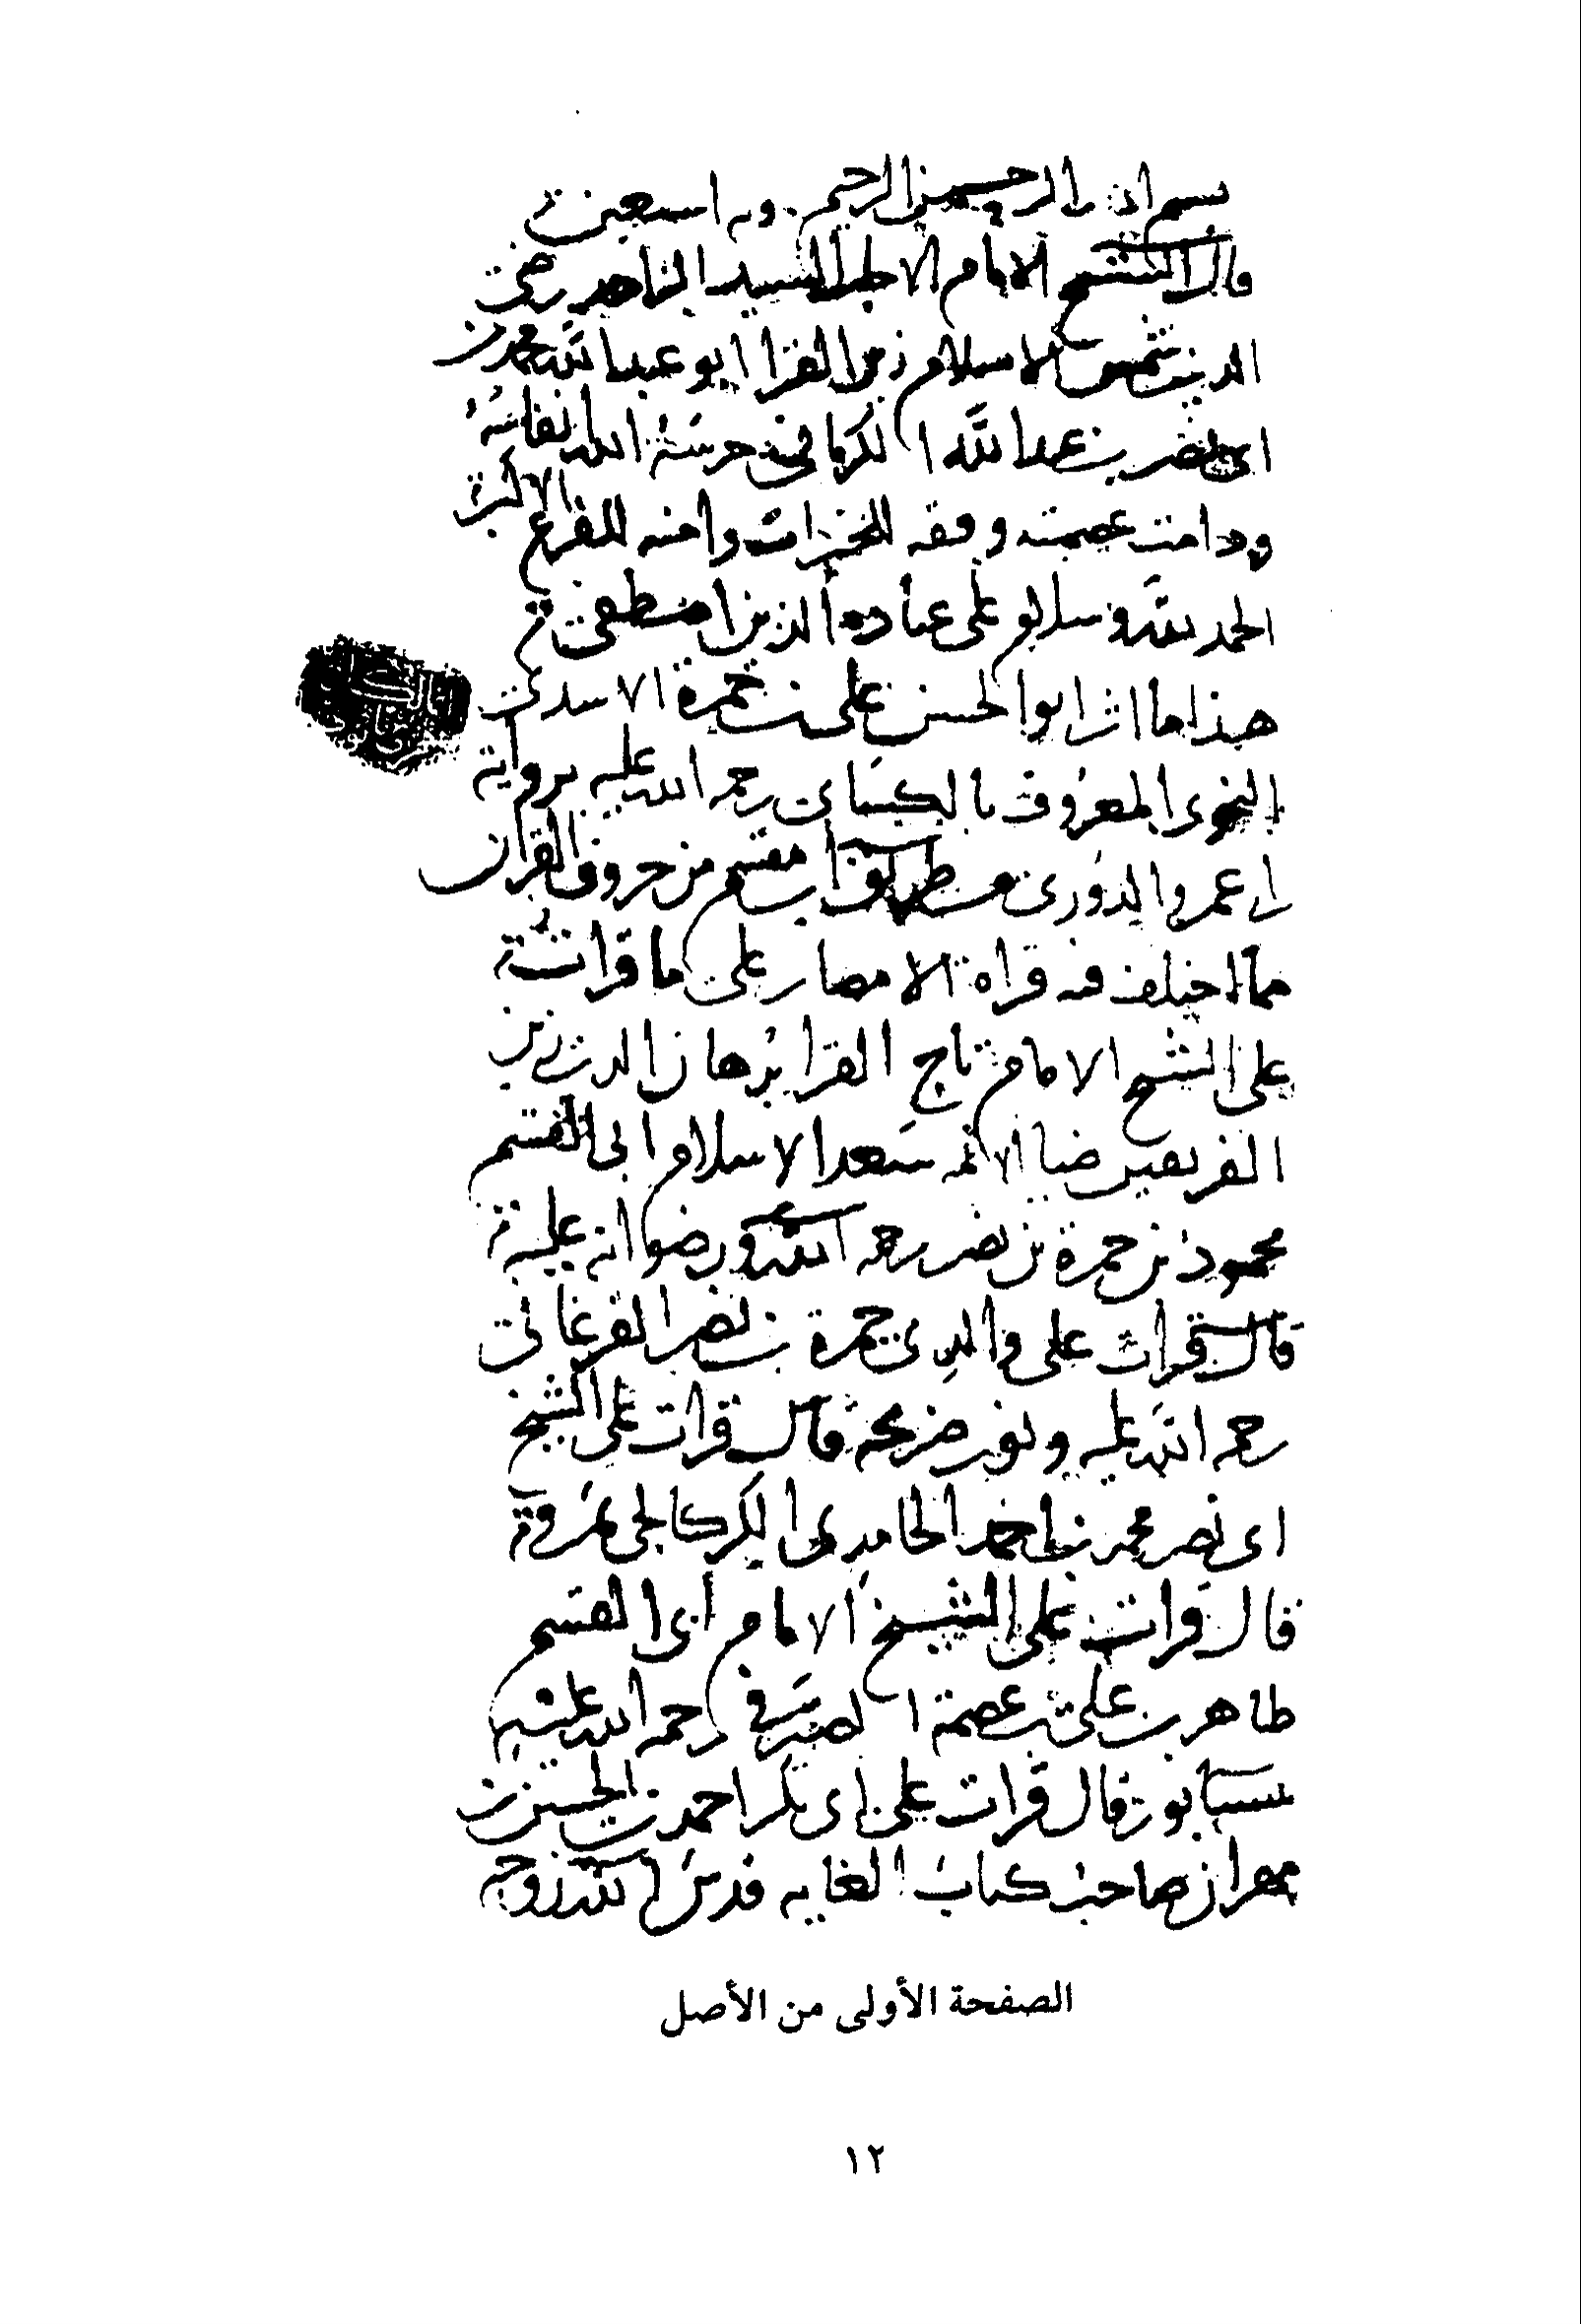 بسم الله الرحمن الرحيم وبه استعين
قال الشيخ الامام الاجل السيد الزاهد رضي
الدين شمس الاسلام زين القرا ابو عبد الله محمد بن
ابى نصر بن عبد الله الكرماني حرسَهُ الله انفاسَهُ
ودامت عصمته وفقه للخيرات وامنه للفزع الاكبر
الحمد لله وسلام على عباده الذين اصطفى
هذا ما اثر ابوا الحسن على بن حمزة الاسدي
النحوى المعروف بالكسَاى رحمه الله عليه برواية
ابى عمر والدُورى من حروف القران
مما اختلف فيه قراة الامصار على ما قراتُه
على الشيخ الامام تاج القرا بُرهان الدين زين
الفريقين ضيا الائمه سَعد الاسلام ابى القسم
محمود بن حمزة بن نصر رحمه الله ورضوانه عليه
قال قرات على والدِى حمزة بن نصر الفرغانى
رحمه الله عليه ونور ضريحه قال قرات على الشيخ
ابى نصر محمد بن احمد الحامدِى الكركانجى بمَروة
قال قرات على الشيخ الامام ابى القسم
طاهر بن على بن عصمة الصيرَفى رحمه الله عليه
بنيسابور قال قرات على ابى بكر احمد بن الحسين بن
مهران صاحب كتاب الغايه قدسَ الله روحه
الصفحة الأولى من الأصل
١٢